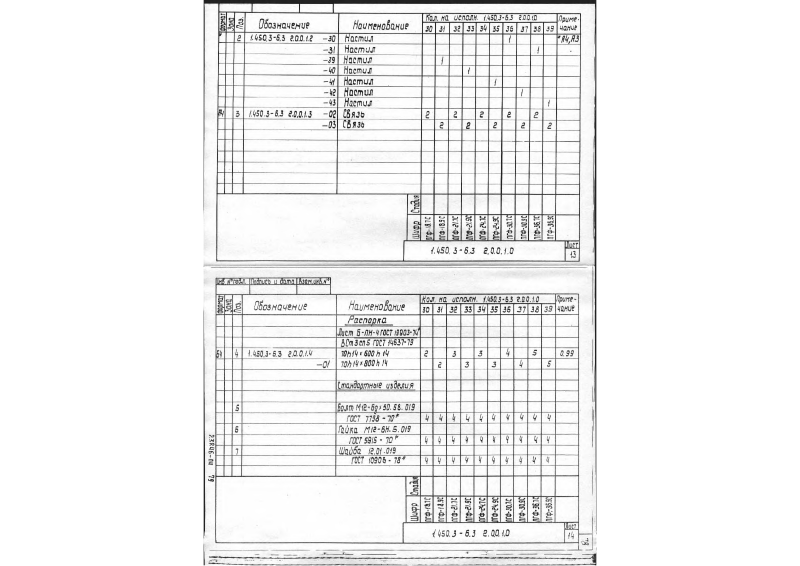 Формат Зона Поз. Обозначение Наименование Кол. на исполн. 1.450.3-6.3 2.0.0.1.0 Приме-
30 31 32 33 34 35 36 37 38 39 чание
2 1.450.3-6.3 2.0.0.1.2 -30 Настил 1 *А4,А3
-31 Настил 1
-39 Настил 1
-40 Настил 1
-41 Настил 1
-42 Настил 1
-43 Настил 1
А4 3 1.450.3-6.3 2.0.0.1.3 -02 Связь 2 2 2 2 2
-03 Связь 2 2 2 2 2
Стадия
Шифр ППФ-18.7С ППФ-18.9С ППФ-21.7С ППФ-21.9С ППФ-24.7С ППФ-24.9С ППФ-30.7С ППФ-30.9С ППФ-36.7С ППФ-36.9С
1.450.3-6.3 2.0.0.1.0 Лист
13
Инв. № подл. Подпись и дата Взам.инв.№
Формат Зона Поз. Обозначение Наименование Кол. на исполн. 1.450.3-6.3 2.0.0.1.0 Приме-
30 31 32 33 34 35 36 37 38 39 чание
Распорка
Лист Б-ПН-4 ГОСТ 19903-74*
ВСт3сп5 ГОСТ 14637-79
БЧ 4 1.450.3-6.3 2.0.0.1.4 70h14×600h14 2 3 3 4 5 0.99
-01 70h14×800h14 2 3 3 4 5
Стандартные изделия
5 Болт М12-6g×30.58.019
ГОСТ 7798-70* 4 4 4 4 4 4 4 4 4 4
6 Гайка М12-6Н.5.019
ГОСТ 5915-70* 4 4 4 4 4 4 4 4 4 4
7 Шайба 12.01.019
ГОСТ 10906-78* 4 4 4 4 4 4 4 4 4 4
Стадия
Шифр ППФ-18.7С ППФ-18.9С ППФ-21.7С ППФ-21.9С ППФ-24.7С ППФ-24.9С ППФ-30.7С ППФ-30.9С ППФ-36.7С ППФ-36.9С
1.450.3-6.3 2.0.0.1.0 Лист
14
79